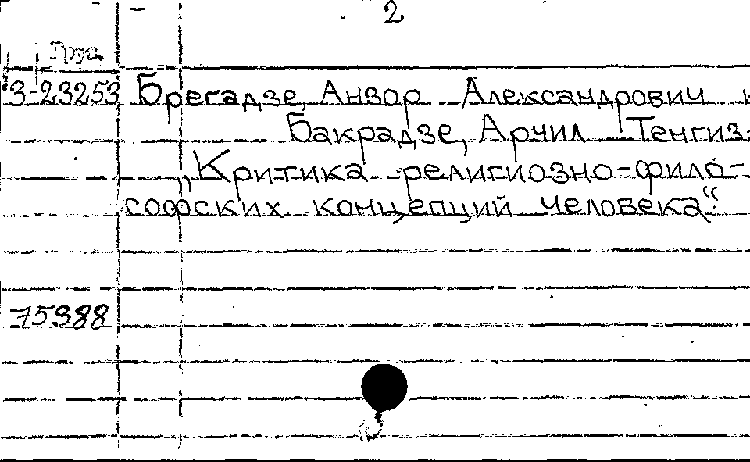 2
Груз.
3-23253 Брегадзе, Анзор Александрович и
Бакрадзе, Арчил Тенгиз.
„Критика религиозно-фило-
софских концепций человека“.
75388